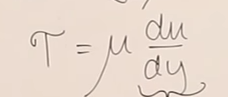 τ = μ du/dy